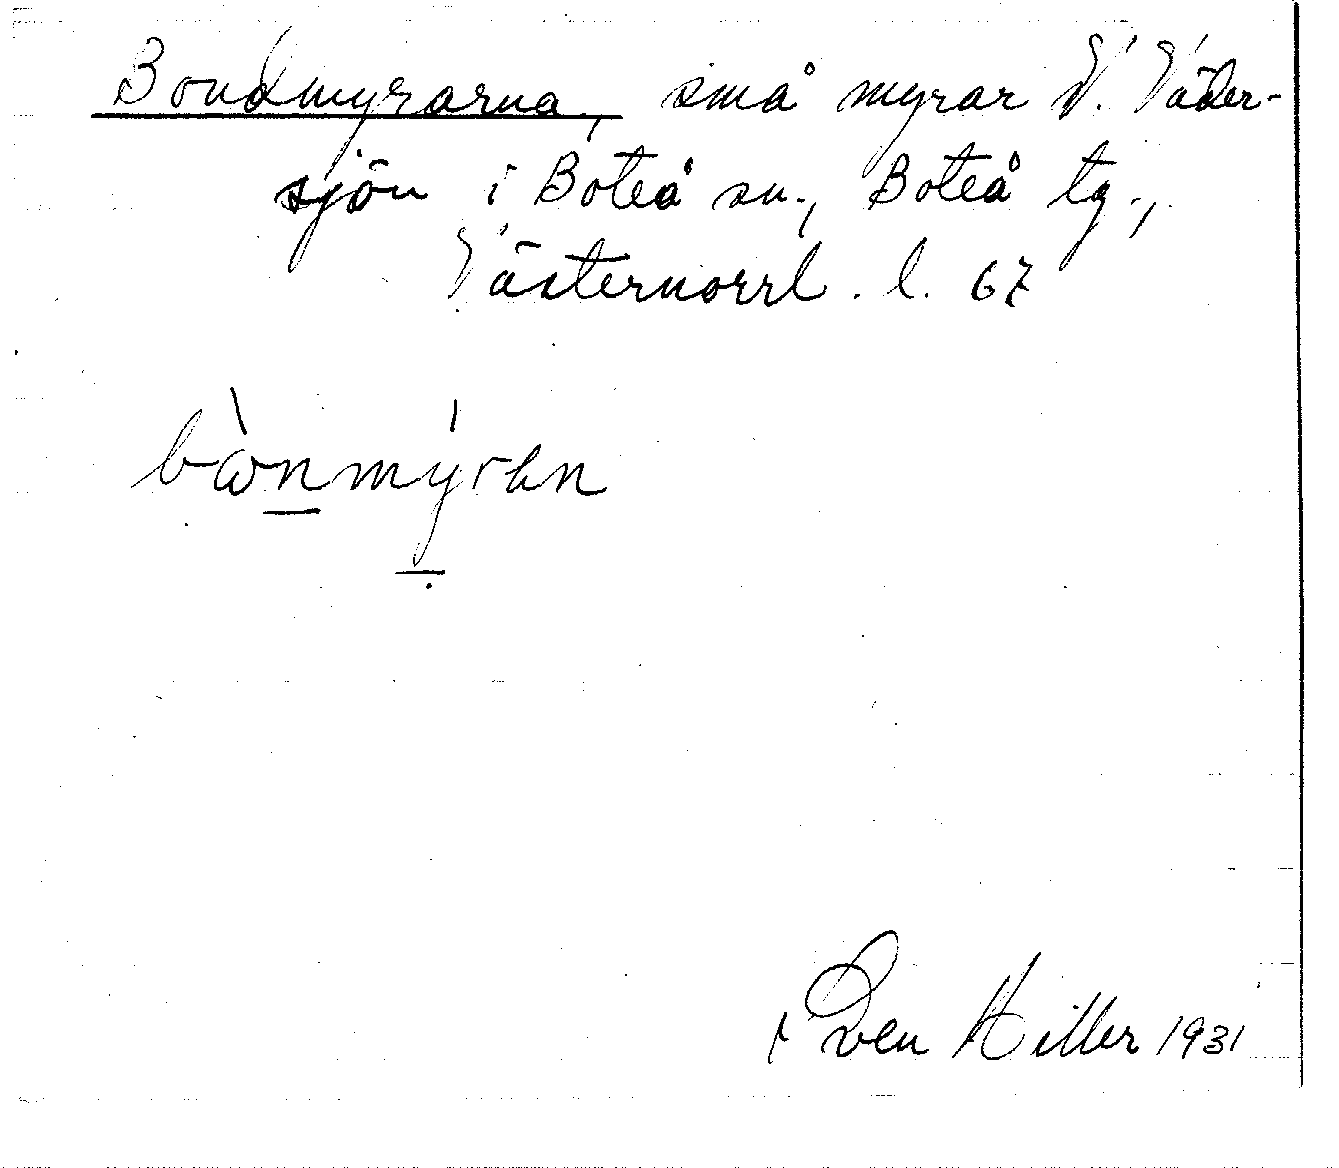 Bondmyrarna, små myrar V. Väder-
sjön i Boteå sn., Boteå tg.,
Västernorrl. l. 67
bὼnmýrɐn
Sven Hiller 1931